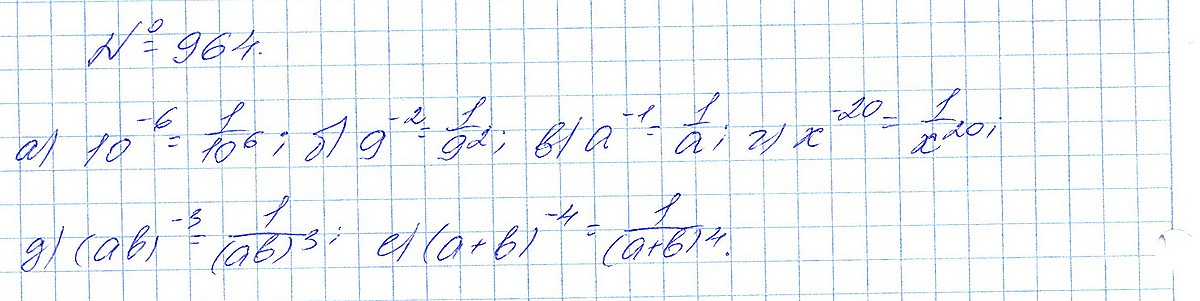 № 964.
а) 10⁻⁶ = 1/10⁶; б) 9⁻² = 1/9²; в) a⁻¹ = 1/a; г) x⁻²⁰ = 1/x²⁰;
д) (ab)⁻³ = 1/(ab)³; е) (a+b)⁻⁴ = 1/(a+b)⁴.